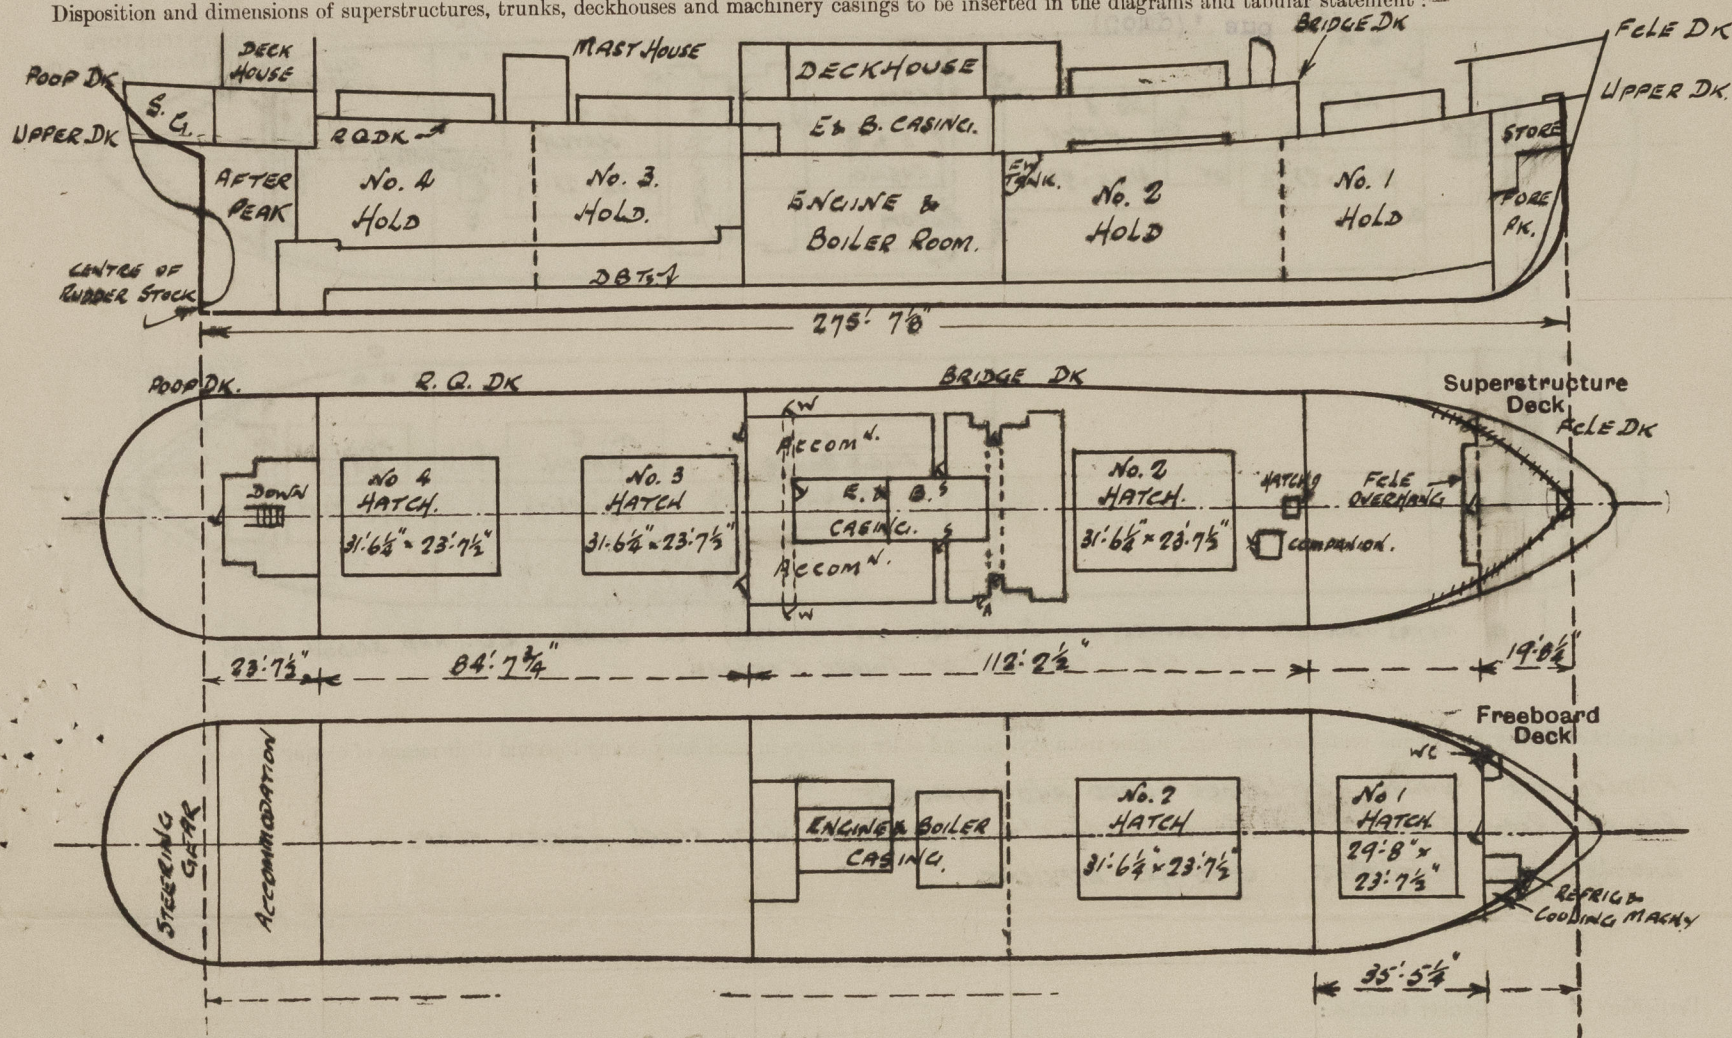 Disposition and dimensions of superstructures, trunks, deckhouses and machinery casings to be inserted in the diagrams and tabular statement :—
POOP DK
DECK
HOUSE
MAST HOUSE
DECKHOUSE
BRIDGE DK
FCLE DK
UPPER DK
S.G.
UPPER DK
RQDK
E & B. CASING.
STORE
AFTER
PEAK
No. 4
HOLD
No. 3.
HOLD.
ENGINE &
BOILER ROOM.
FW
TANK.
No. 2
HOLD
No. 1
HOLD
FORE
PK.
CENTRE OF
RUDDER STOCK
DBTs
275'. 7⅛"
POOP DK.
R. Q. DK
BRIDGE DK
Superstructure
Deck
FCLE DK
DOWN
No 4
HATCH.
31'.6¼" × 23'.7½"
No. 3
HATCH
31'.6¼" × 23'.7½"
W
ACCOMN.
E. & B.
CASING.
ACCOMN.
W
S
S
A
No. 2
HATCH.
31'.6¼" × 23'.7½"
HATCH
COMPANION.
FCLE
OVERHANG
23'.7½"
84'.7¾"
112'.2½"
19'.8¼"
Freeboard
Deck
STEERING
GEAR
ACCOMMODATION
ENGINE & BOILER
CASING.
No. 2
HATCH
31'.6¼" × 23'.7½"
No 1
HATCH
29'.8" ×
23'.7½"
WC
REFRIG &
COOLING MACHY
35'.5¼"